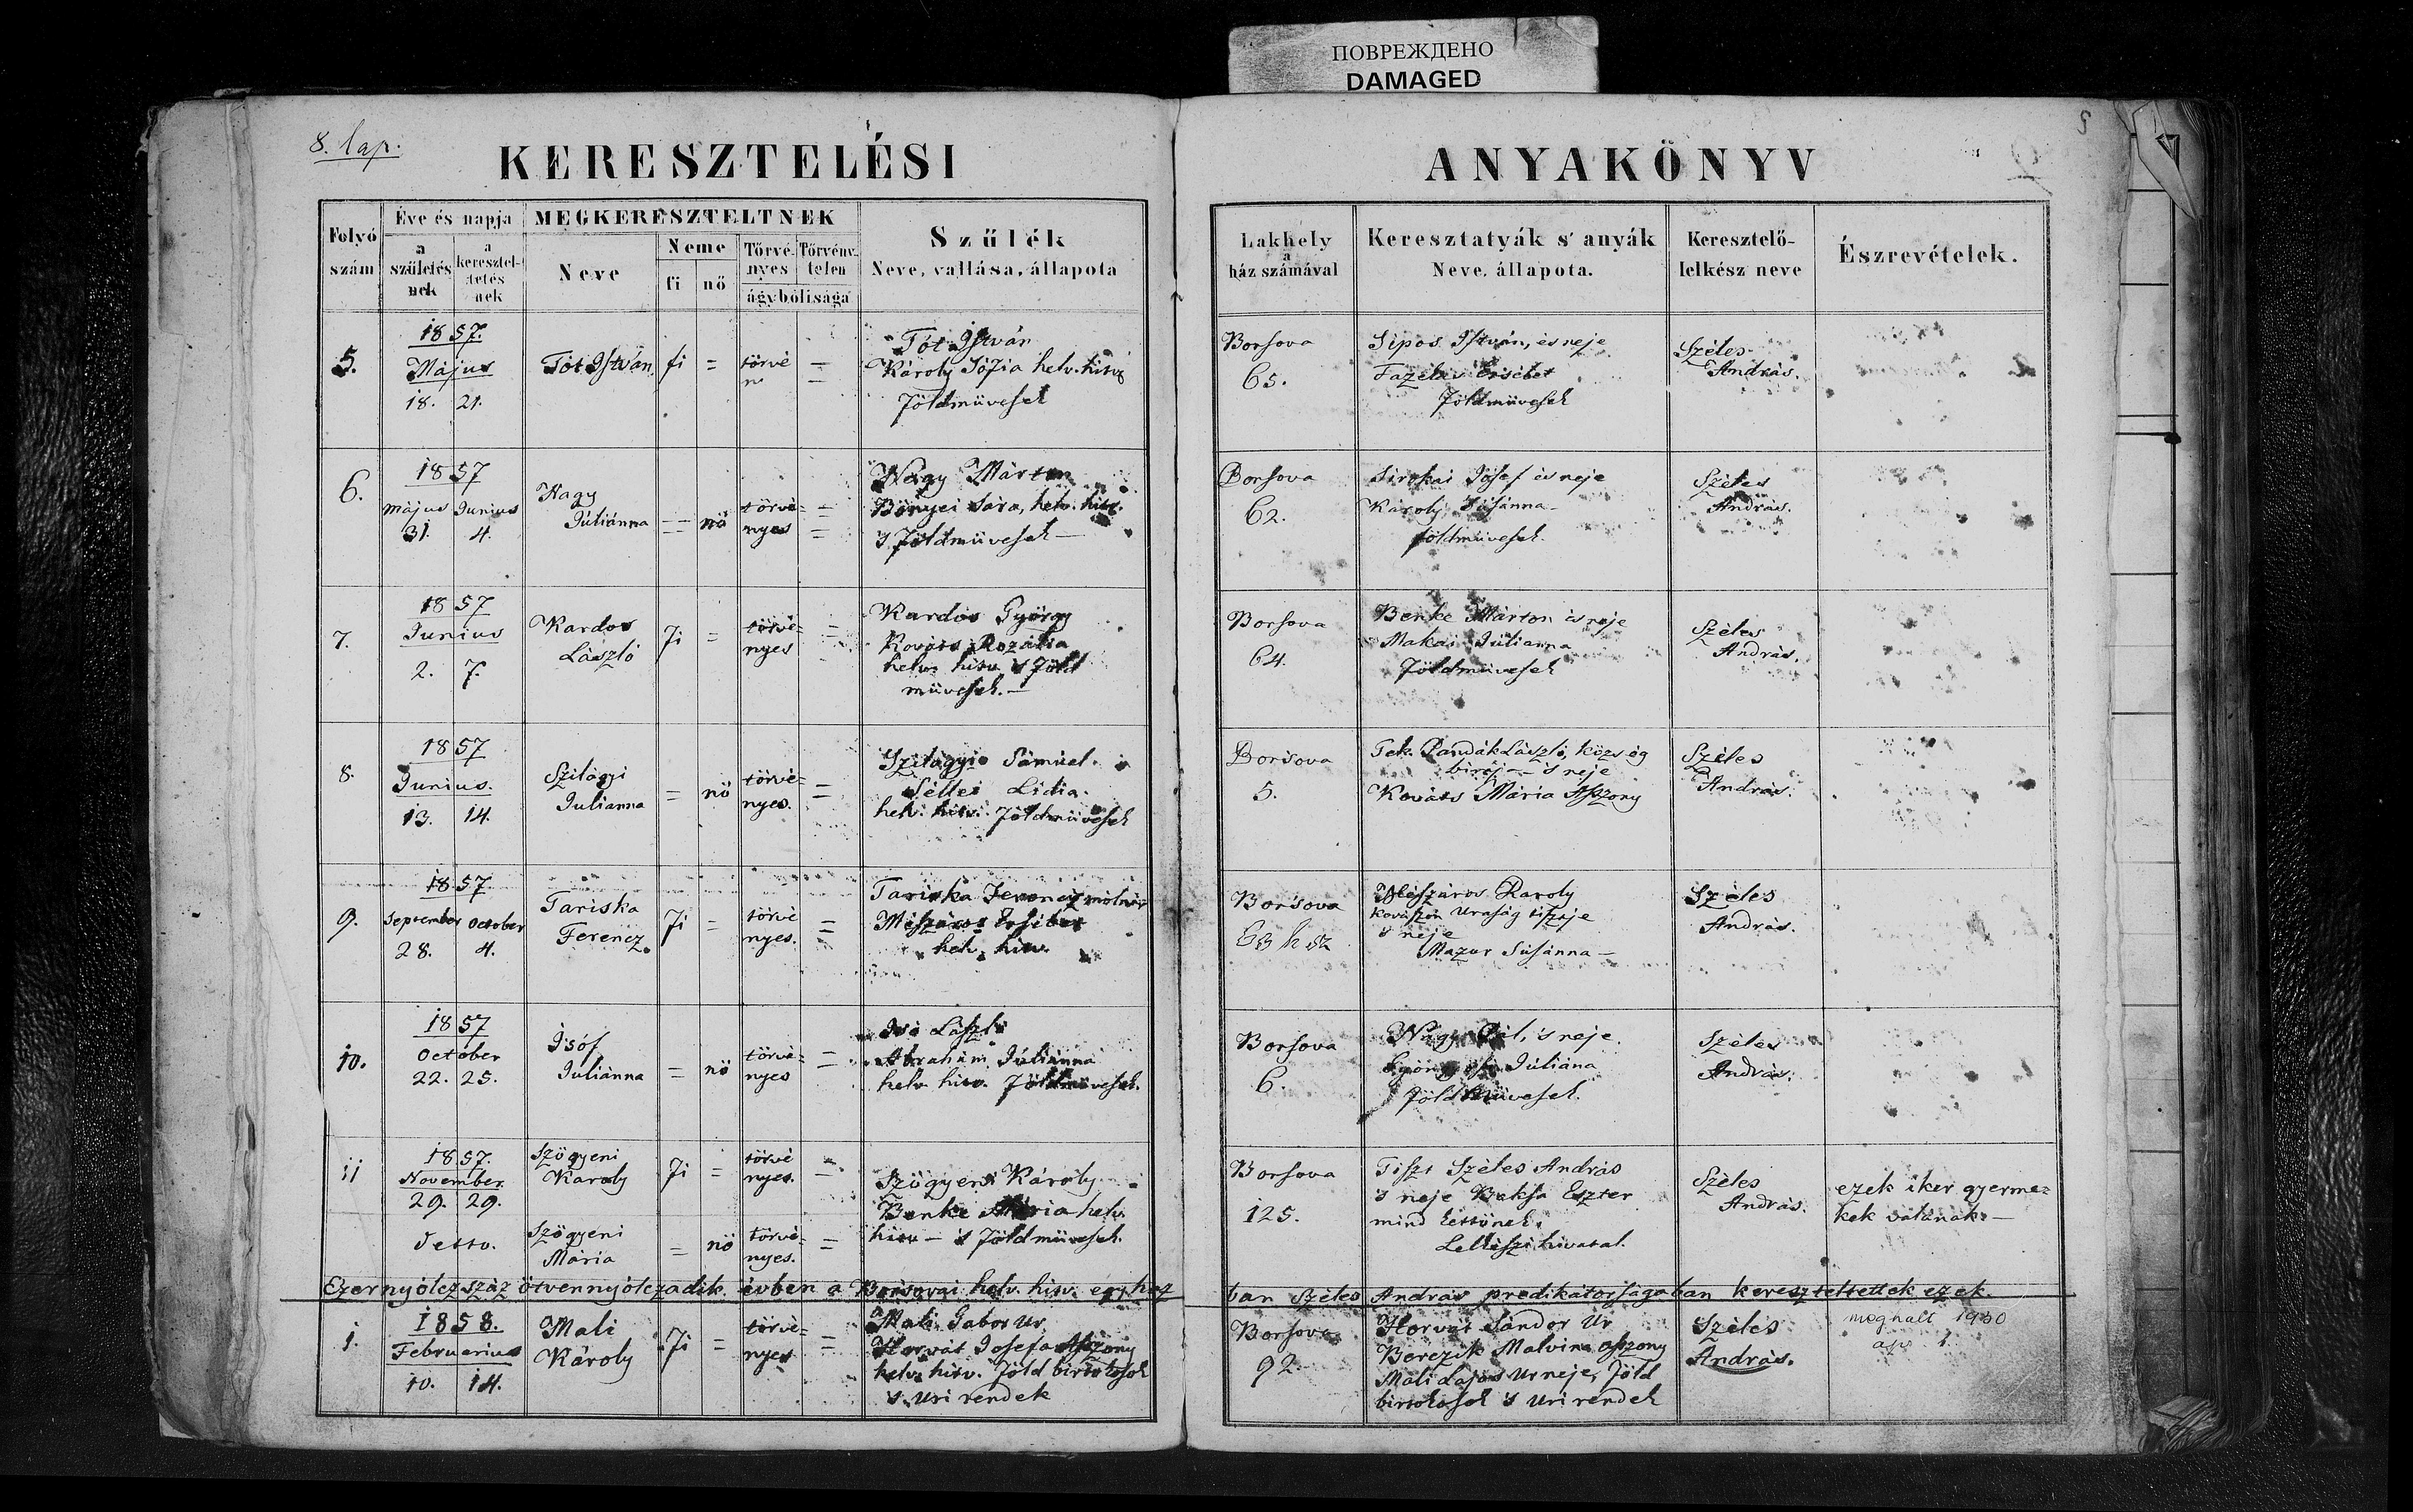 ПОВРЕЖДЕНО
DAMAGED
8. lap.
KERESZTELÉSI
ANYAKÖNYV
Folyó szám
Éve és napja
a születés nek
a keresztel- tetés nek
MEGKERESZTELTNEK
Neve
Neme
fi
nő
Törvé- nyes
Törvény- telen
ágybólisága
Szülék
Neve, vallása, állapota
Lakhely
a
ház számával
Keresztatyák s' anyák
Neve, állapota.
Keresztelő-
lelkész neve
Észrevételek.
5.
1857.
Május
18. 21.
Tót István
fi = törvé
Tót István
Károly Sófia helv. hitv
földmüvesek
Borsova
65.
Sipos István, és neje
Fazekas Ersébet
földmüvesek
Széles
András.
6.
1857
május Junius
31. 4.
Nagy
Júliánna
= nő törvé=
nyes =
Nagy Márton
Bónyei Sára, helv. hitv.
s földmüvesek —
Borsova
62.
Sirokai Jósef és neje
Károly Súsánna —
földmüvesek.
Széles
András.
7.
1857
Junius
2. 7.
Kardos
László
fi = törvé=
nyes =
Kardos György
Kováts Rozália
helv. hitv. 's föld
müvesek. —
Borsova
64.
Benke Márton és neje
Makai Júlianna
földmüvesek
Széles
András.
8.
1857
Junius.
13. 14.
Szilágyi
Julianna
= nő törvé=
nyes. =
Szilágyi Sámuel.
Séllei Lidia.
helv. hitv. földmüvesek
Borsova
5.
Tek. Pandák László, község
birája — 's neje
Kováts Mária Aszony
Széles
András.
9.
1857
September October
28. 4.
Tariska
Ferencz.
fi = törvé
nyes. =
Tariska Ferencz molnár
Mészáros Ersébet
helv. hitv.
Borsova
Mészáros Karoly
kovászói Uraság tisztje
's neje
Mazur Súsánna —
Széles
András.
10.
1857
October
22. 25.
Isóf
Juliánna
= nő törvé=
nyes =
László
Abrahám Júliánna
helv hitv. földmüvesek.
Borsova
6.
Nagy Pál, 's neje
Júliána
földmüvesek.
Széles
András.
11
1857.
November.
29. 29.
Szögyeni
Karoly
fi = törvé
nyes. =
Szögyeni Károly
Benke Mária helv.
hitv — 's földmüvesek.
Borsova
125.
Tiszt Széles András
's neje Baksa Eszter
mind kettőnek
Lelkészi hivatal.
Széles
András.
ezek iker gyerme=
kek valának. —
detto.
Szögyeni
Mária
= nő törvé=
nyes. =
Ezernyólczszáz ötvennyólczadik évben a Borsovai helv. hitv. egyház
ban Széles András predikátorságában kereszteltettek ezek.
1.
1858.
Februarius
10. 14.
Mali
Károly
fi = törvé=
nyes =
Mali Gabor Ur
Horvát Josefa Aszony
helv. hitv. föld birtokosok
's uri rendek
Borsova
92
Horvát Sándor Ur
Berezik Malvina aszony
Mali Lajos Ur neje, föld
birtokosok 's uri rendek
Széles
András.
meghalt 1930